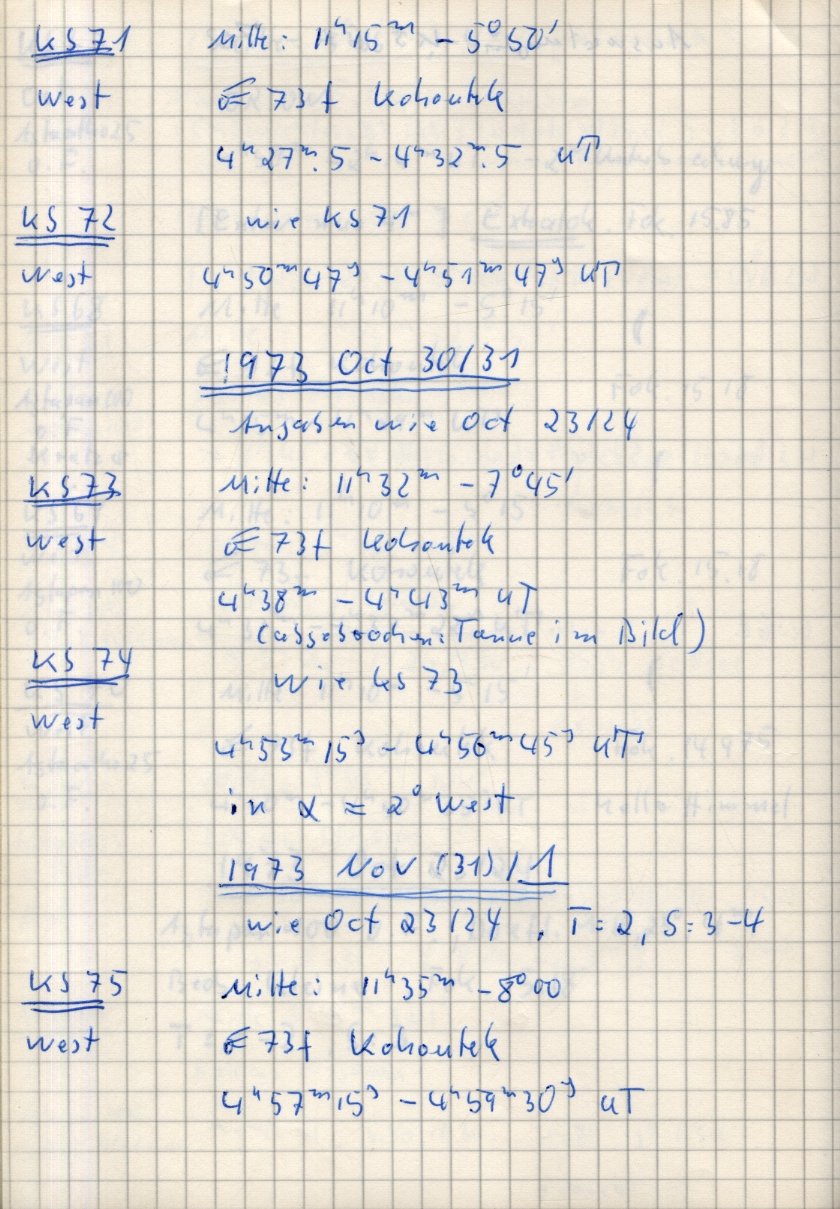 KS 71 Mitte: 11ʰ15ᵐ – 5°50'
West ☄ 73f Kohoutek
4ʰ27ᵐ.5 – 4ʰ32ᵐ.5 UT
KS 72 wie KS 71
West 4ʰ50ᵐ47ˢ – 4ʰ51ᵐ47ˢ UT
1973 Oct 30/31
Angaben wie Oct 23/24
KS 73 Mitte: 11ʰ32ᵐ – 7°45'
West ☄ 73f Kohoutek
4ʰ38ᵐ – 4ʰ43ᵐ UT
(abgebrochen: Tanne im Bild)
KS 74 Wie KS 73
West
4ʰ53ᵐ15ˢ – 4ʰ56ᵐ45ˢ UT
in α ≈ 2° West
1973 Nov (31)/1
wie Oct 23/24, T=2, S=3–4
KS 75 Mitte: 11ʰ35ᵐ – 8°00
West ☄ 73f Kohoutek
4ʰ57ᵐ15ˢ – 4ʰ59ᵐ30ˢ UT